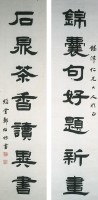 錦囊句好題新畫
石鼎茶香讀異書